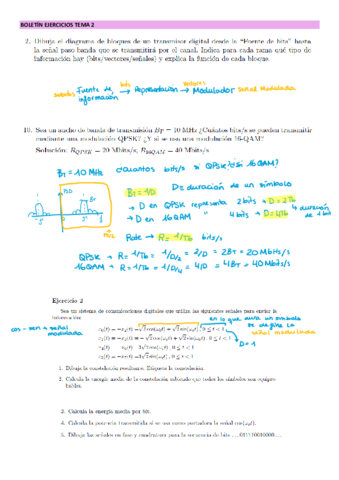 BOLETÍN EJERCICIOS TEMA 2
2. Dibuja el diagrama de bloques de un transmisor digital desde la “Fuente de bits” hasta
la señal paso banda que se transmitirá por el canal. Indica para cada rama qué tipo de
información hay (bits/vectores/señales) y explica la función de cada bloque.
Fuente de información → bits → Representación → vectores → Modulador → señal Modulada
10. Sea un ancho de banda de transmisión B_T = 10 MHz ¿Cuántos bits/s se pueden transmitir
mediante una modulación QPSK? ¿Y si se usa una modulación 16-QAM?
Solución: R_QPSK = 20 Mbits/s, R_16QAM = 40 Mbits/s
B_T = 10 MHz ¿cuantos bits/s si QPSK? ¿Si 16QAM?
D = duración de un símbolo
→ D en QPSK representa 2 bits → D = 2Tb
→ D en 16QAM " 4 bits → D = 4Tb
duración de 1 bit
Rate → R = 1/Tb bits/s
QPSK → R = 1/Tb = 1/D/2 = 2/D = 2BT = 20 Mbits/s
16QAM → R = 1/Tb = 1/D/4 = 4/D = 4BT = 40 Mbits/s
Ejercicio 2
Sea un sistema de comunicaciones digitales que utiliza las siguientes señales para enviar la
en lo que dura un símbolo se define la señal modulada
cos - sen → señal modulada
D = 1
1. Dibuja la constelación resultante. Etiqueta la constelación.
2. Calcula la energía media de la constelación sabiendo que todos los símbolos son equipro-
bables.
3. Calcula la energía media por bit.
4. Calcula la potencia transmitida si se usa como portadora la señal cos(ω₀t).
5. Dibuja las señales en fase y cuadratura para la secuencia de bits